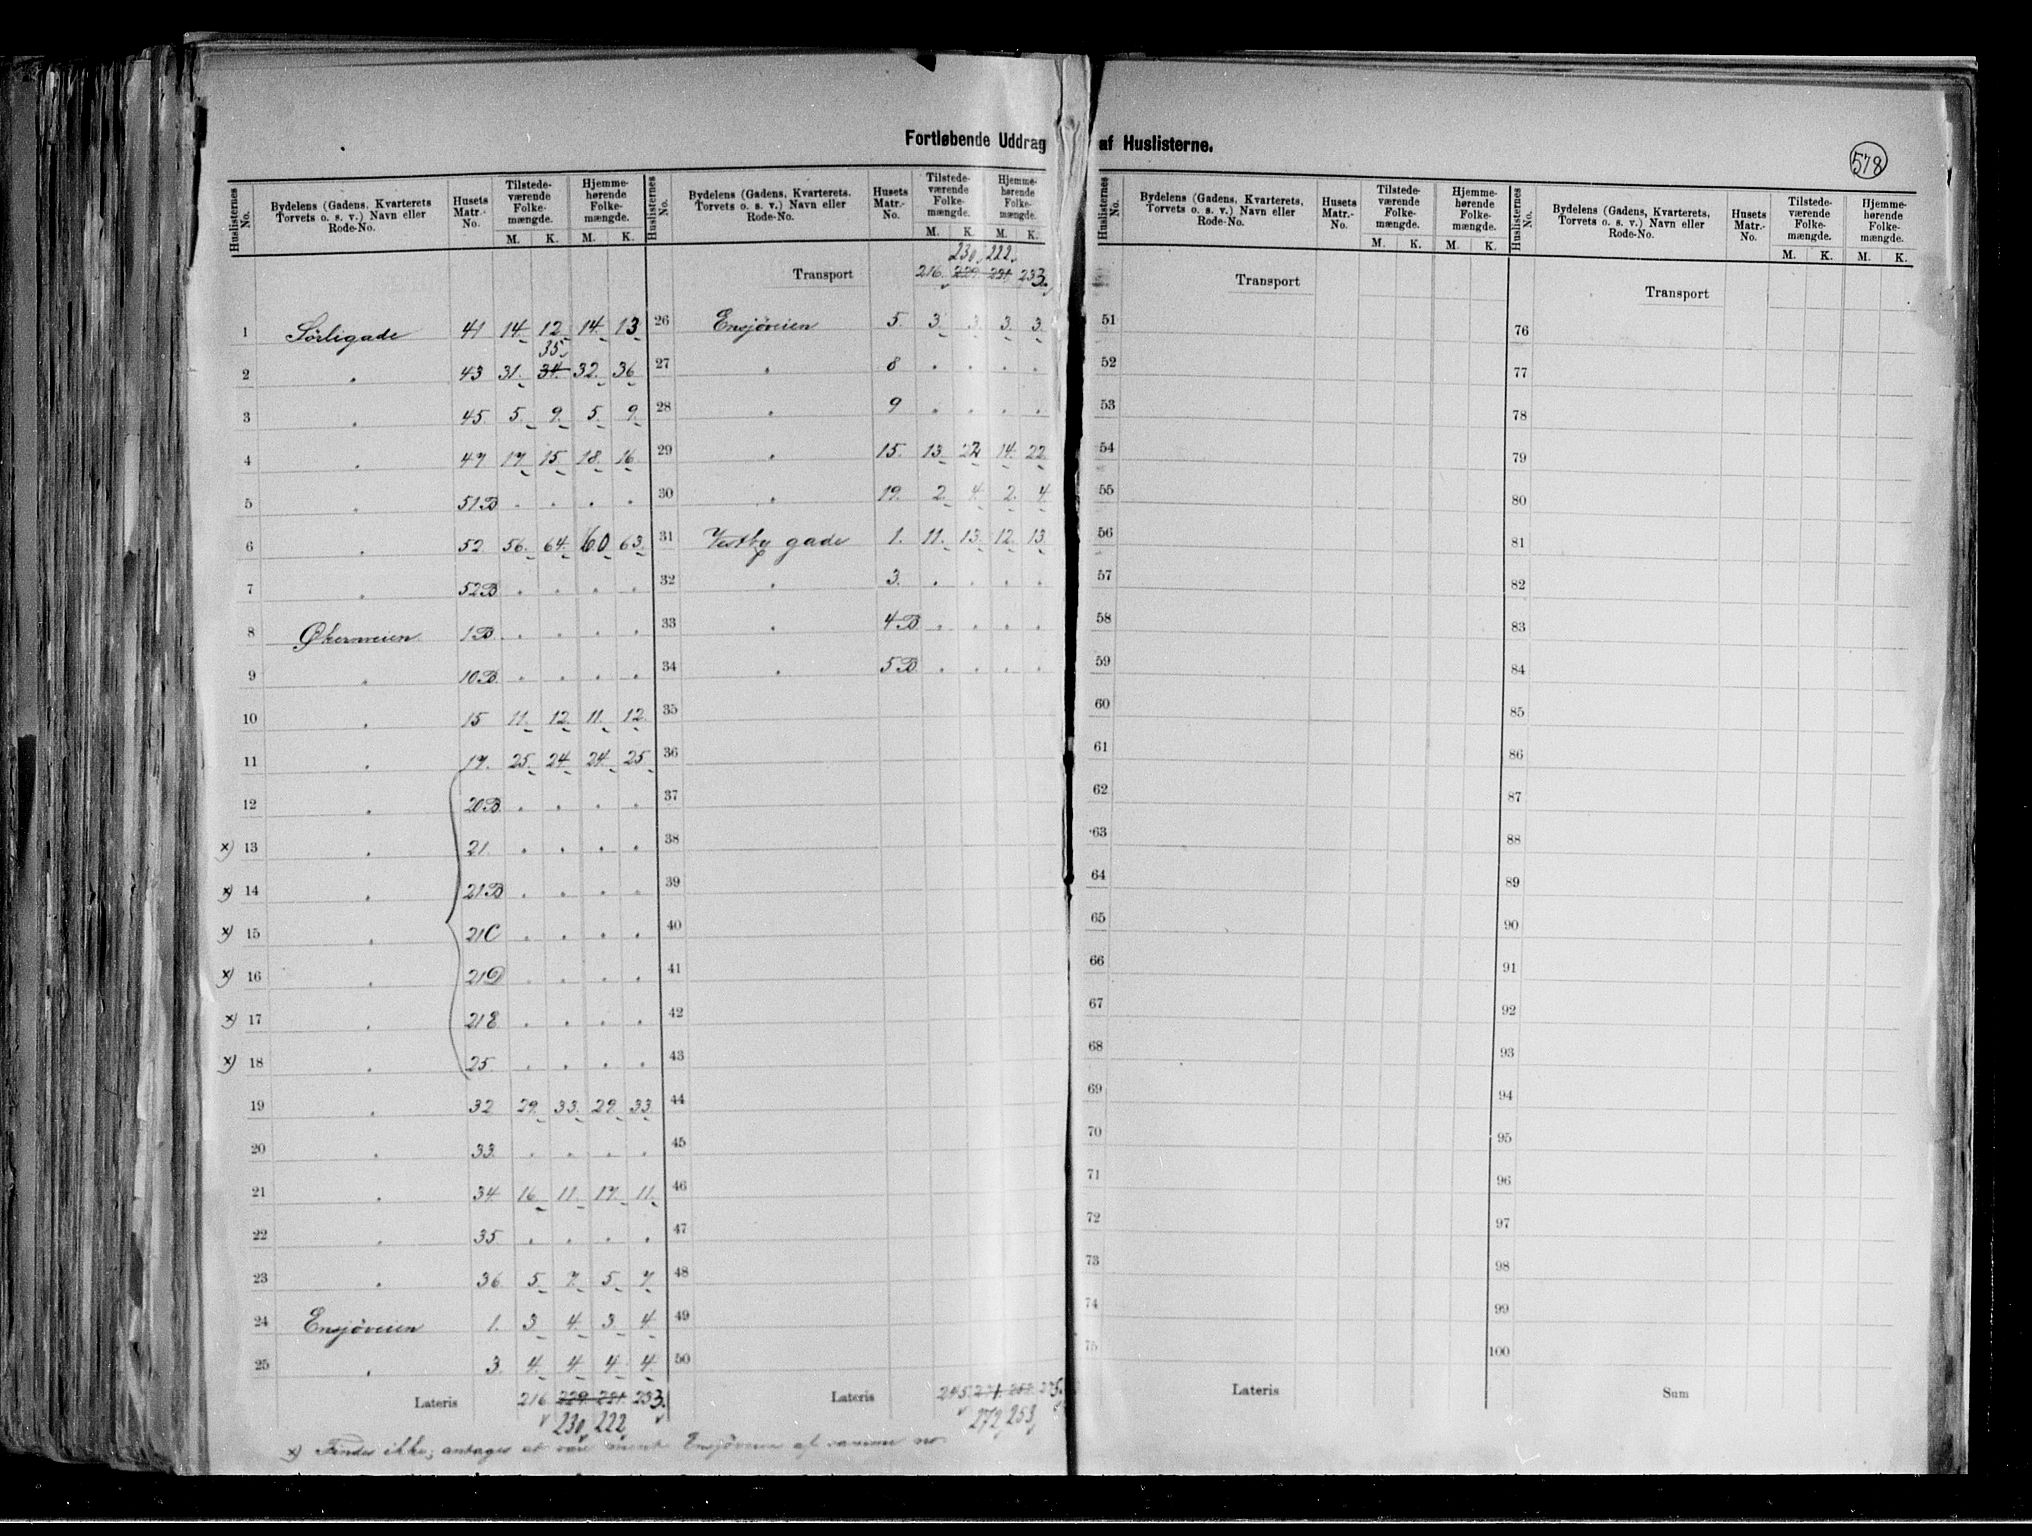 Fortløbende Uddrag af Huslisterne.
578
Huslisternes No. | Bydelens (Gadens, Kvarterets Torvets o. s. v.) Navn eller Rode-No. | Husets Matr.-No. | Tilstedeværende Folkemængde. M. K. | Hjemmehørende Folkemængde. M. K.
1 Sørligade 41 14. 12. 14. 13
35
2 „ 43 31. 34. 32. 36
3 „ 45. 5. 9. 5. 9.
4 „ 47 17. 15. 18. 16
5 „ 51B . . . .
6 „ 52 56. 64. 60 63.
7 „ 52B . . . .
8 Økernveien 1B . . . .
9 „ 10B . . . .
10 „ 15 11. 12. 11. 12.
11 „ 17. 25. 24. 24. 25.
12 „ 20B . . . .
x) 13 „ 21. . . . .
x) 14 „ 21B . . . .
x) 15 „ 21C . . . .
x) 16 „ 21D . . . .
x) 17 „ 21E . . . .
x) 18 „ 25. . . . .
19 „ 32 29. 33. 29. 33.
20 „ 33. . . . .
21 „ 34. 16. 11. 17. 11.
22 „ 35 . . . .
23 „ 36 5. 7. 5. 7.
24 Ensjøveien 1. 3 4. 3. 4
25 „ 3. 4. 4. 4. 4.
Lateris 216 229. 221. 233.
230, 222,
Huslisternes No. | Bydelens (Gadens, Kvarterets. Torvets o. s. v.) Navn eller Rode-No. | Husets Matr.-No. | Tilstedeværende Folkemængde. M. K. | Hjemmehørende Folkemængde. M. K.
230, 222,
Transport 216. 229. 221. 233.
26 Ensjøveien 5. 3. 3. 3. 3.
27 „ 8 . . . .
28 „ 9 . . . .
29 „ 15. 13. 22 14. 22.
30 „ 19. 2. 4. 2. 4
31 Vestby gade 1. 11. 13. 12. 13.
32 „ 3. . . . .
33 „ 4B . . . .
34 „ 5B . . . .
35
36
37
38
39
40
41
42
43
44
45
46
47
48
49
50
Lateris 245. 271. 252. 275.
272, 253,
x) Findes ikke; antages at være ment Ensjøveien af samme no.
Huslisternes No. | Bydelens (Gadens, Kvarterets, Torvets o. s. v.) Navn eller Rode-No. | Husets Matr.-No. | Tilstedeværende Folkemængde. M. K. | Hjemmehørende Folkemængde. M. K.
Transport
51
52
53
54
55
56
57
58
59
60
61
62
63
64
65
66
67
68
69
70
71
72
73
74
75
Lateris
Huslisternes No. | Bydelens (Gadens, Kvarterets, Torvets o. s. v.) Navn eller Rode-No. | Husets Matr.-No. | Tilstedeværende Folkemængde. M. K. | Hjemmehørende Folkemængde. M. K.
Transport
76
77
78
79
80
81
82
83
84
85
86
87
88
89
90
91
92
93
94
95
96
97
98
99
100
Sum